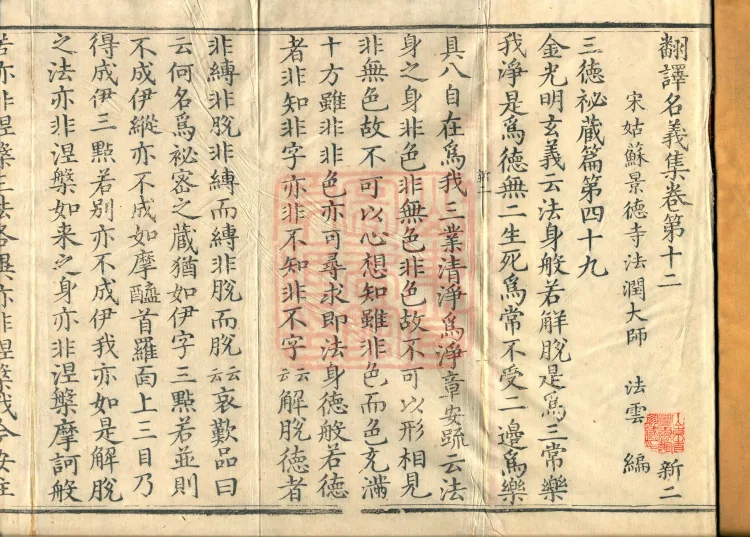 翻譯名義集卷第十二 新二
宋姑蘇景德寺法潤大師 法雲 編
三德祕藏篇第四十九
金光明玄義云法身般若解脫是爲三常樂
我淨是爲德無二生死爲常不受二邊爲樂
新二
具八自在爲我三業清淨爲淨章安䟽云法
身之身非色非無色非色故不可以形相見
非無色故不可以心想知雖非色而色充滿
十方雖非非色亦可尋求即法身德般若德
者非知非字亦非不知非不字云云解脫德者
非縛非脫非縛而縛非脫而脫云云哀歎品曰
云何名爲祕密之藏猶如伊字三點若並則
不成伊縱亦不成如摩醯首羅面上三目乃
得成伊三點若別亦不成伊我亦如是解脫
之法亦非涅槃如来之身亦非涅槃摩訶般
若亦非涅槃三法各異亦非涅槃我今安住